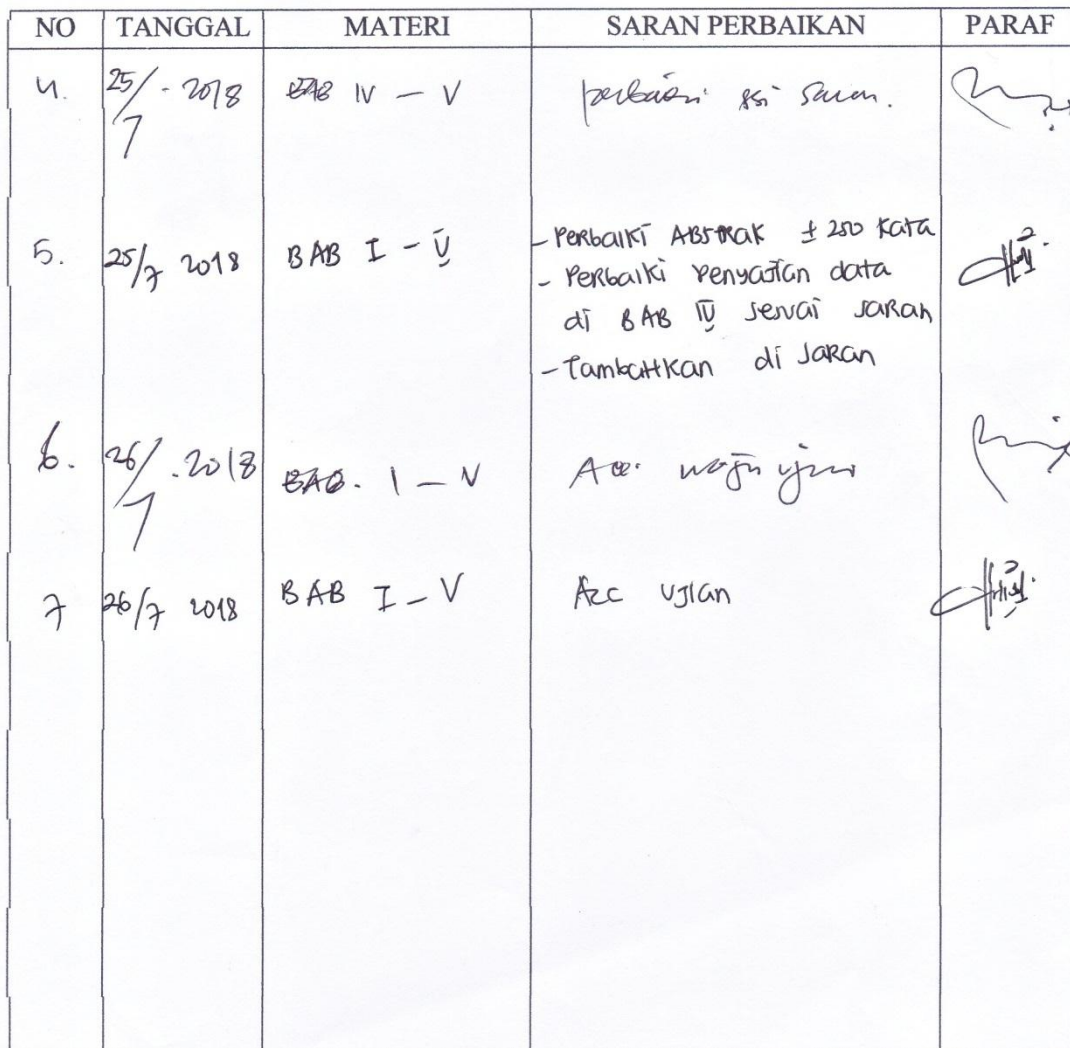 NO TANGGAL MATERI SARAN PERBAIKAN PARAF
4. 25/7 - 2018 BAB IV - V perbaiki ssi saran.
5. 25/7 2018 BAB I - V - Perbaiki ABSTRAK ± 250 kata
- Perbaiki Penyajian data
di BAB IV sesuai saran
- Tambahkan di saran
6. 26/7 . 2018 BAB. I - V Acc maju ujian
7 26/7 2018 BAB I - V Acc Ujian